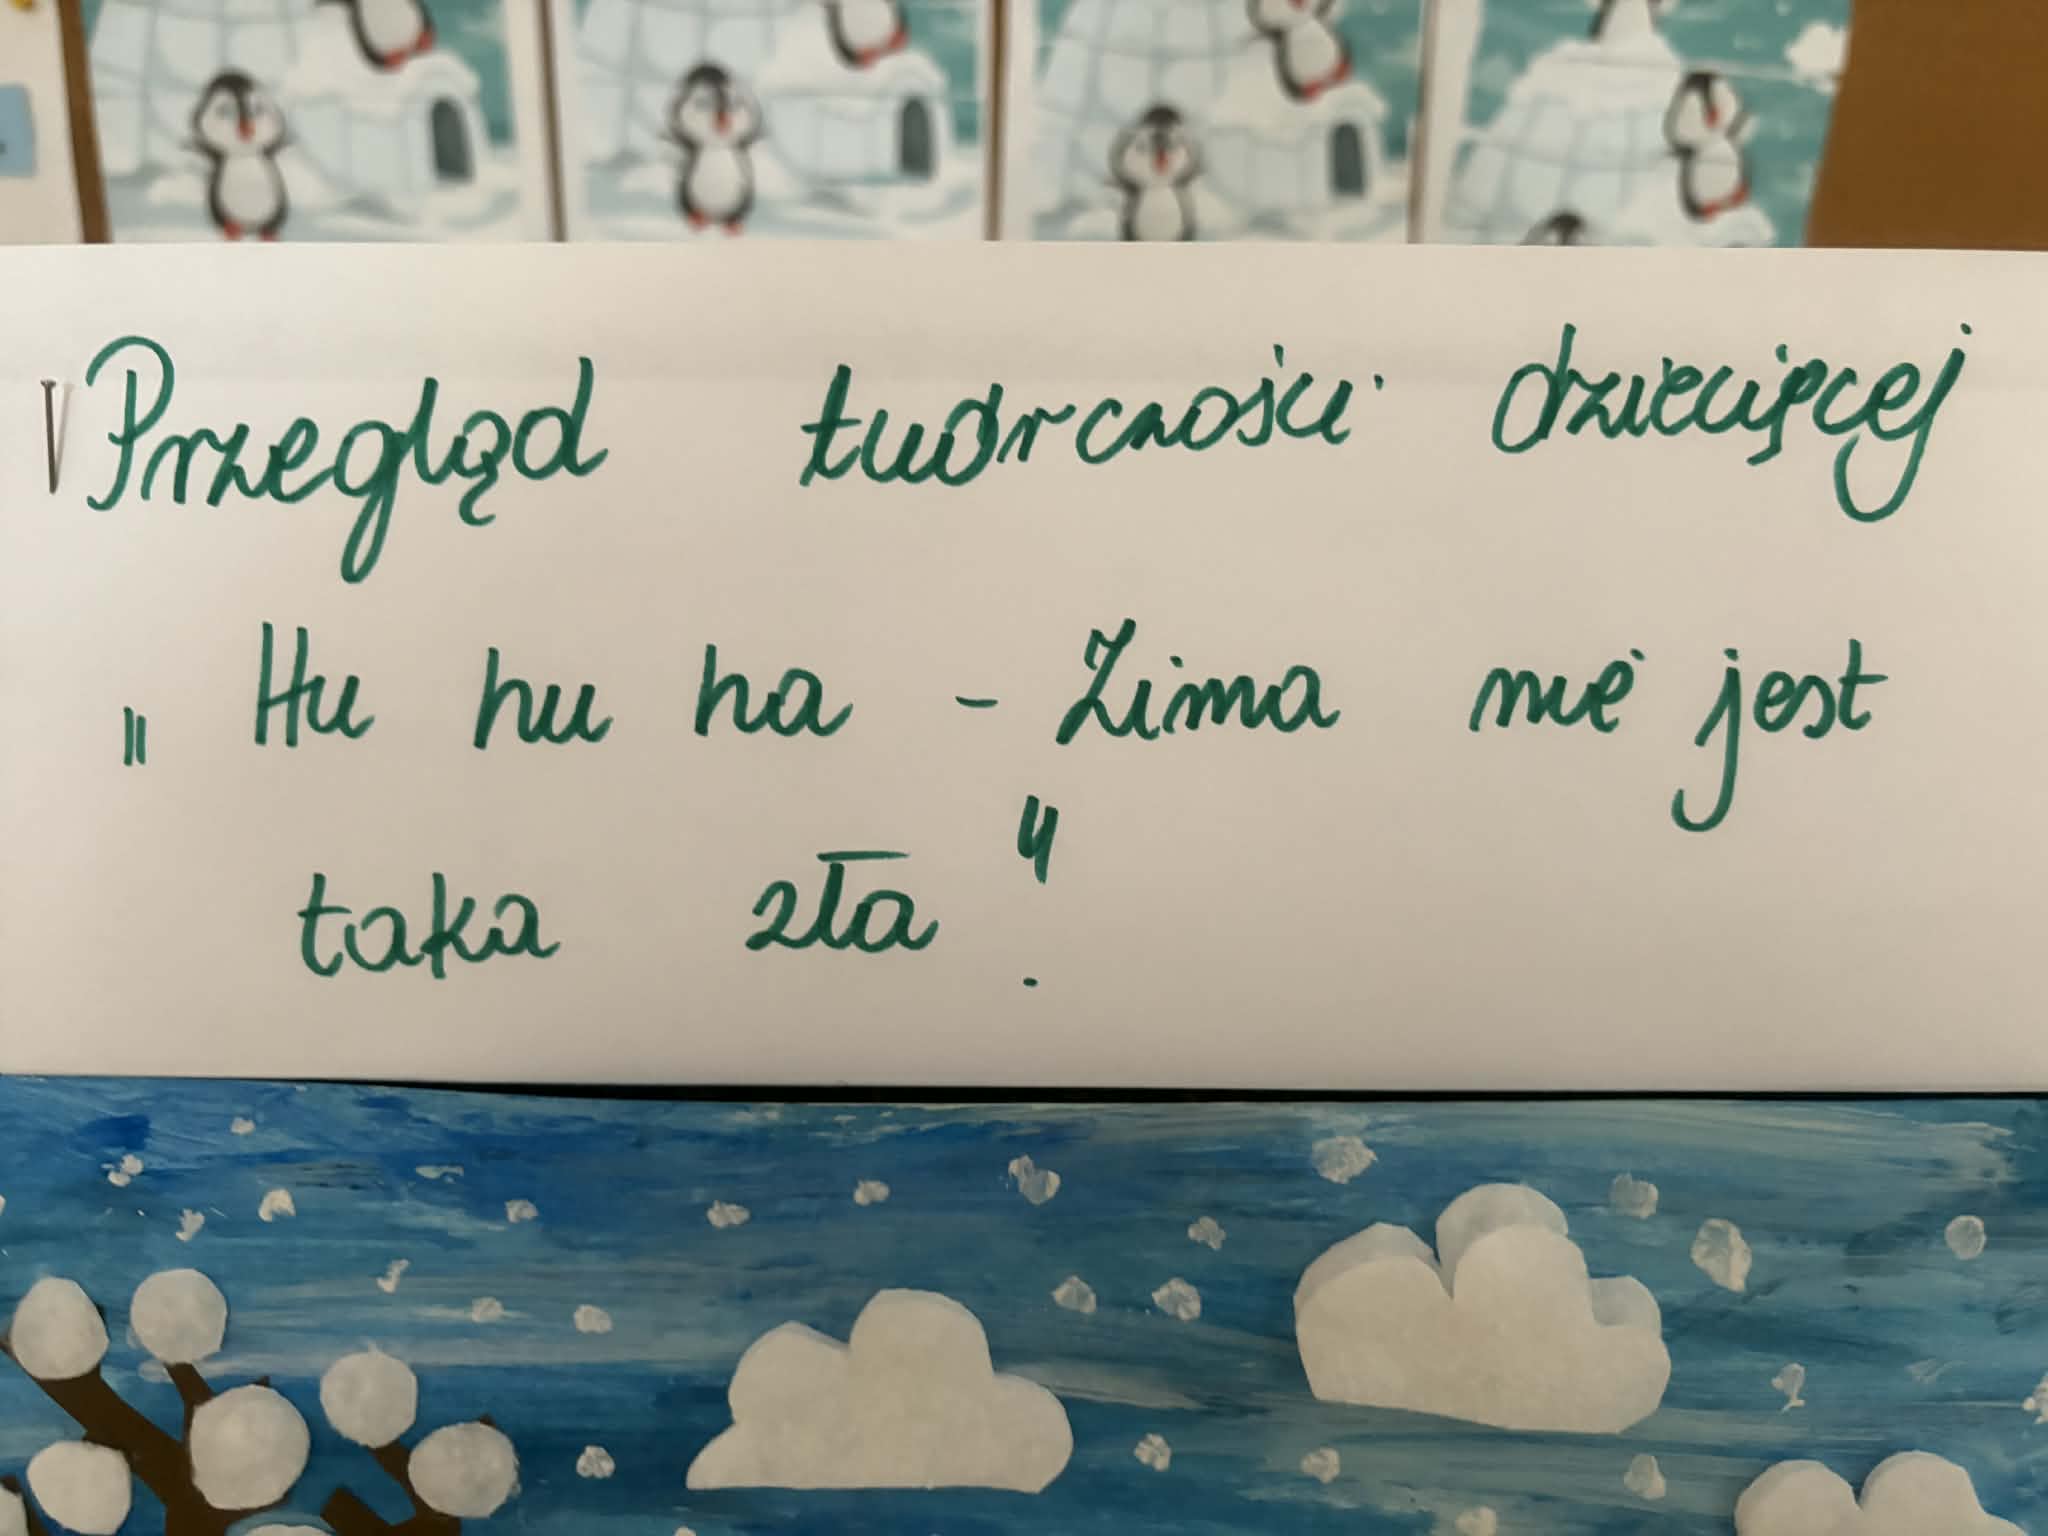 Przegląd twórczości dziecięcej
„ Hu hu ha - Zima nie jest
taka zła".